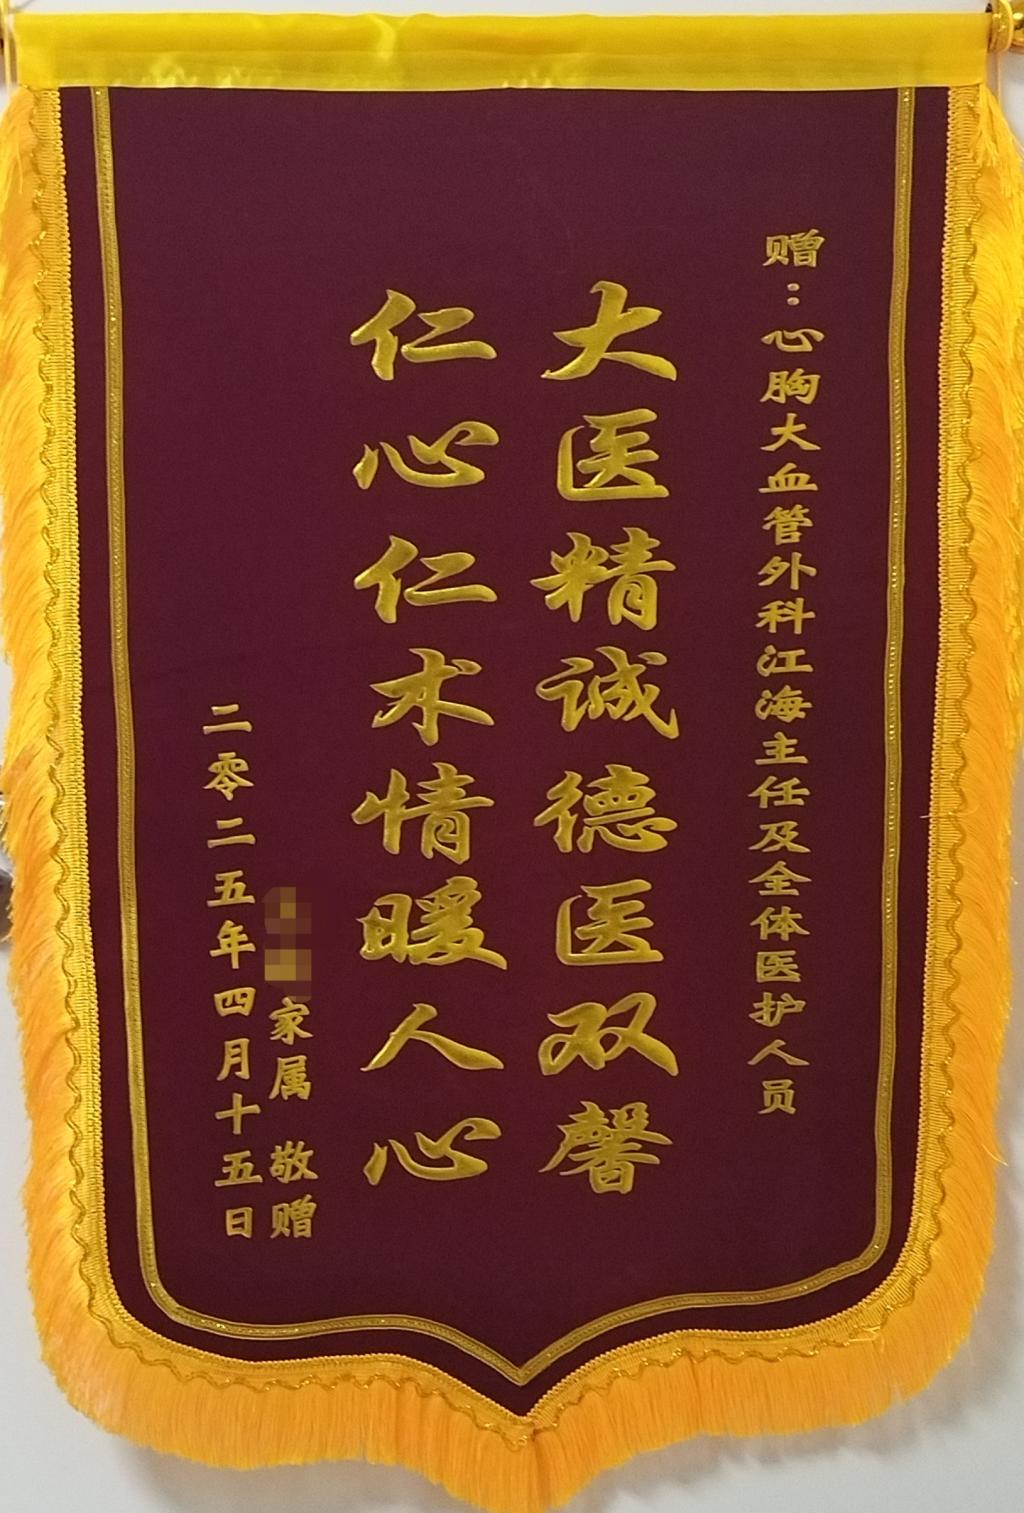 赠:心胸大血管外科江海主任及全体医护人员
大医精诚德医双馨
仁心仁术情暖人心
家属 敬赠
二零二五年四月十五日